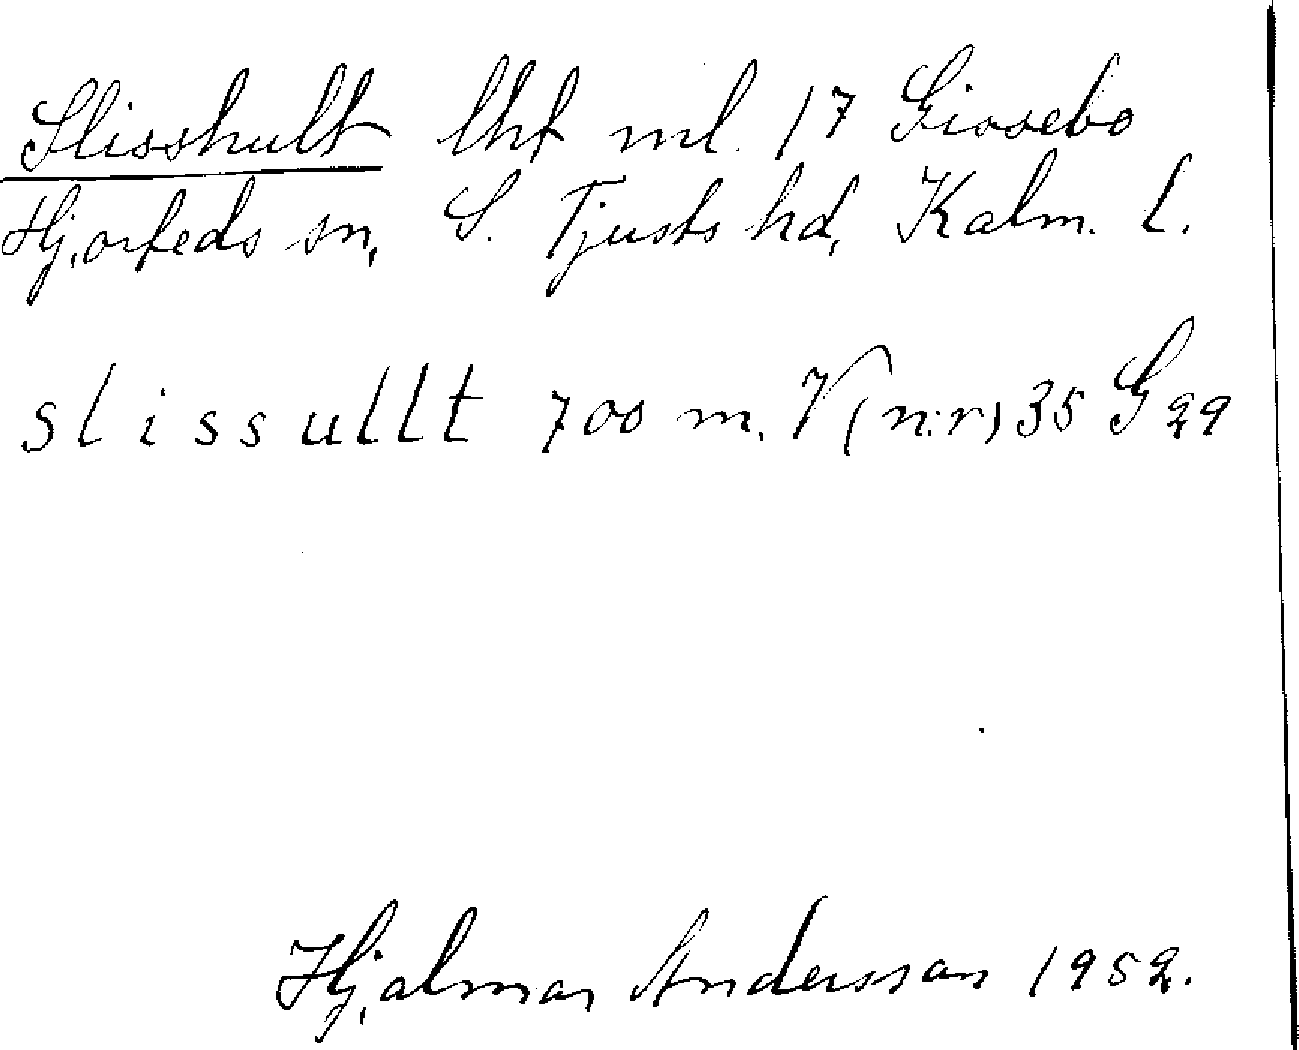 Slisshult lht ml. 17 Gissebo
Hjorteds sn, S. Tjusts hd, Kalm. l.
slissullt 700 m. V (n:r) 35 G 29
Hjalmar Andersson 1952.